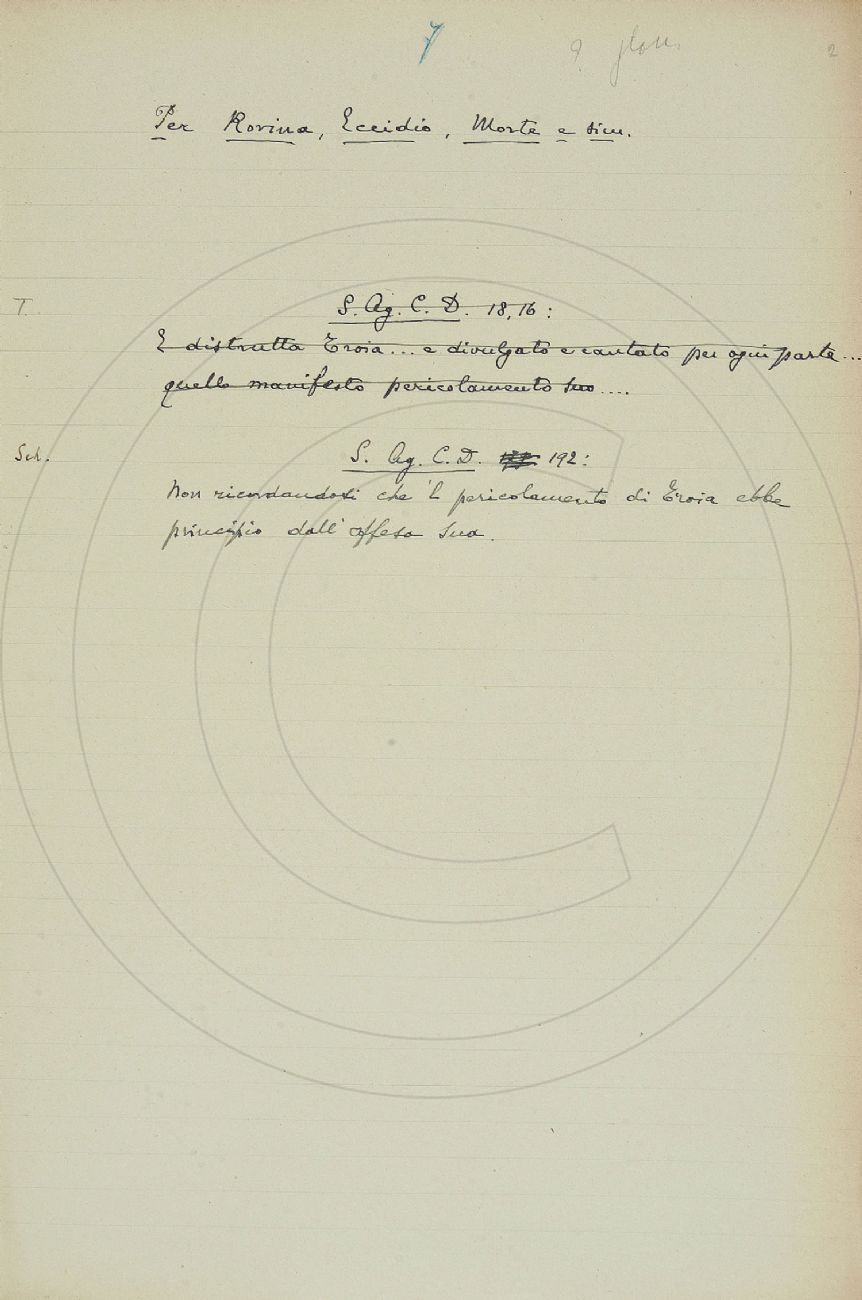 7
2
Per Rovina, Eccidio, Morte e sim.
T.
S. Ag. C. D. 18, 16:
E distrutta Troia... e divulgato e cantato per ogni parte...
quello manifesto pericolamento suo....
Sch.
S. Ag. C. D. 192:
Non ricordandosi che 'l pericolamento di Troia ebbe
principio dall'offesa sua.